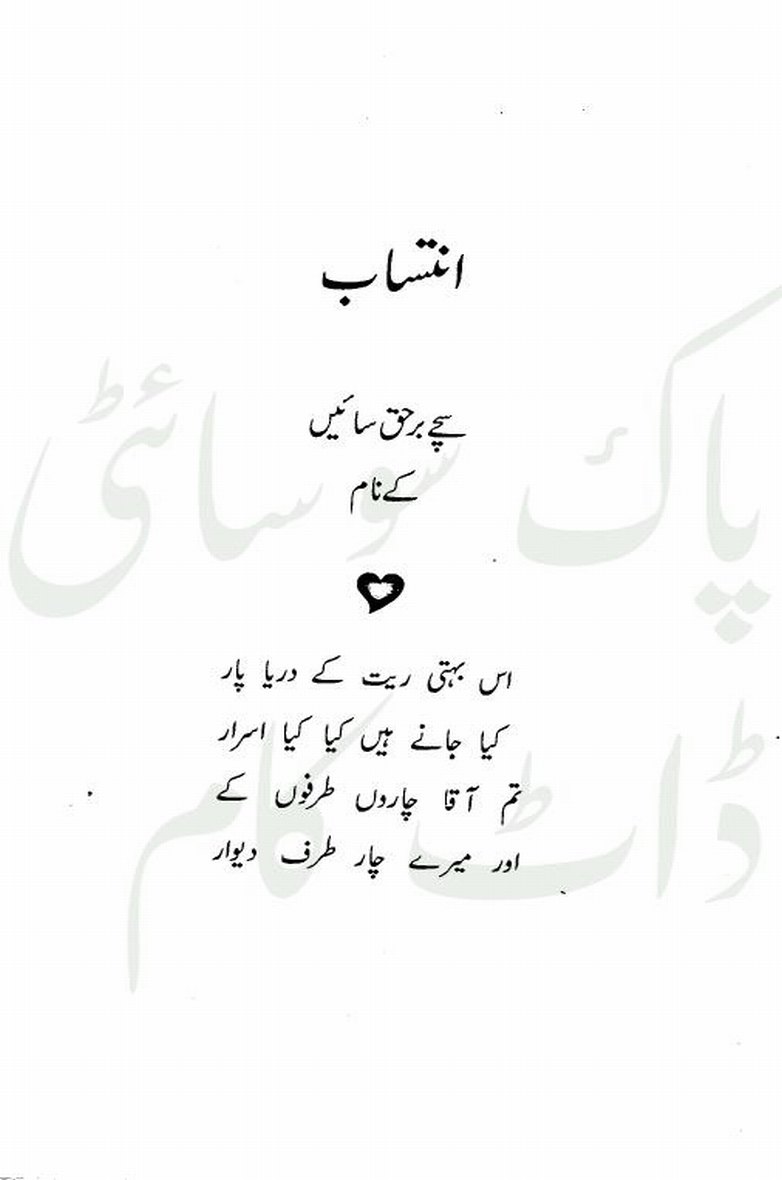 انتساب
سچے برحق سائیں
کے نام
اس بہتی ریت کے دریا پار
کیا جانے ہیں کیا کیا اسرار
تم آقا چاروں طرفوں کے
اور میرے چار طرف دیوار
پاک سوسائٹی
ڈاٹ کام